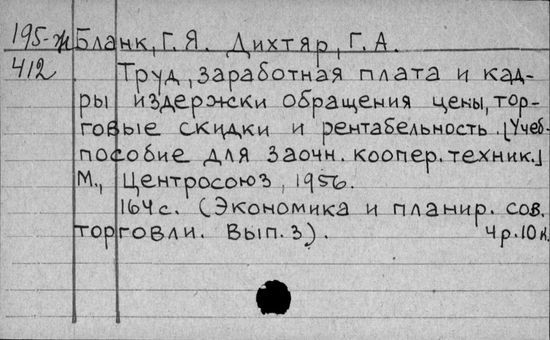 195-ж Бланк, Г. Я. Дихтяр, Г. А.
412 Труд, заработная плата и кад-
ры издержки обращения цены, тор-
говые скидки и рентабельность. [Учеб-
пособие для заочн. коопер. техник.]
М., Центросоюз, 1956.
164 с. (Экономика и планир. сов.
торговли. Вып. 3). 4 р. 10 к.